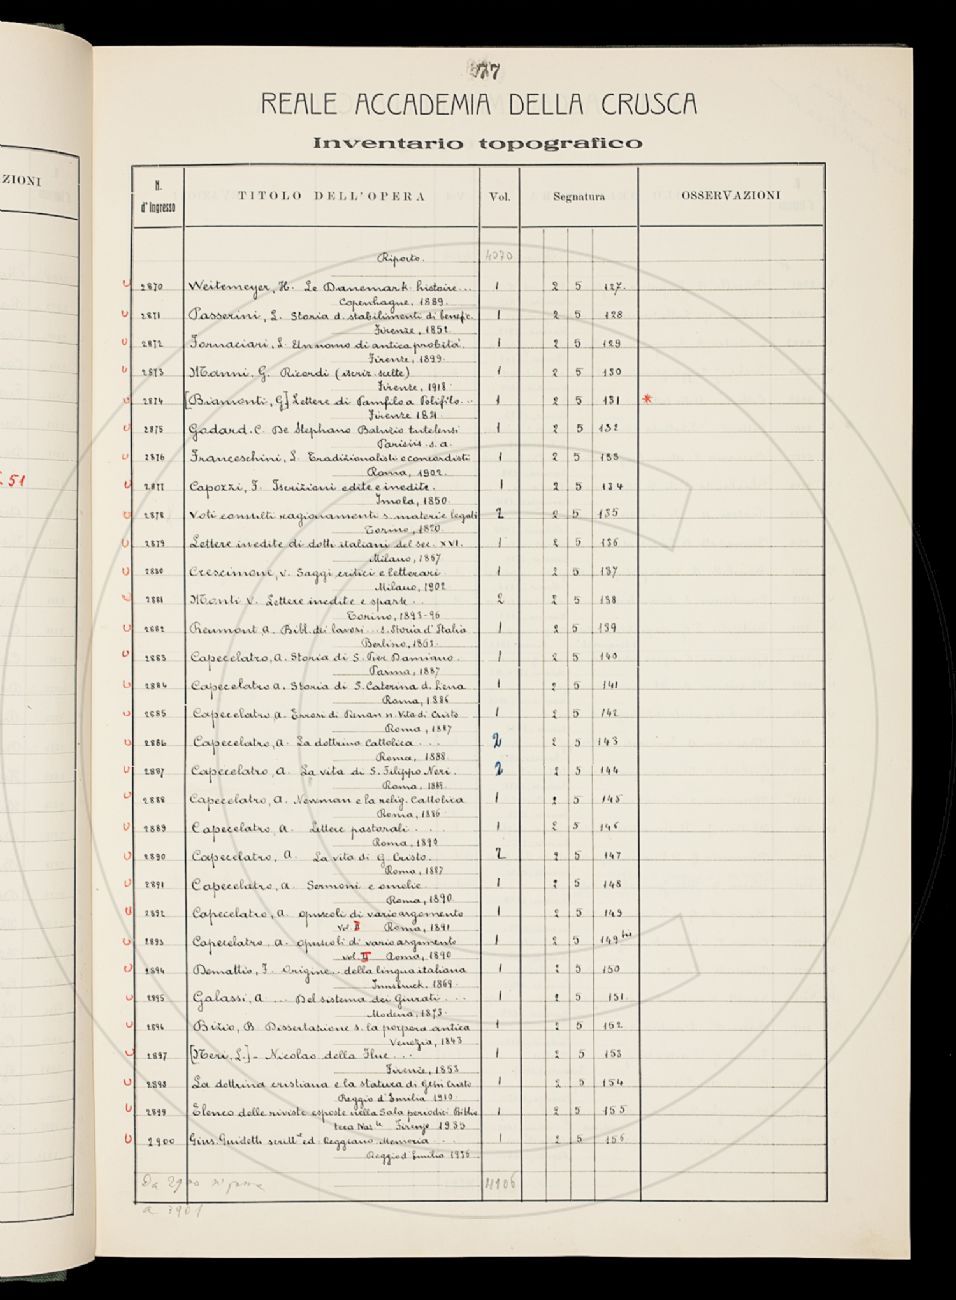 ZIONI
51
77
REALE ACCADEMIA DELLA CRUSCA
Inventario topografico
N. d'Ingresso TITOLO DELL'OPERA Vol. Segnatura OSSERVAZIONI
Riporto. 4070
2870 Weitemeyer, H. Le Danemark. histoire... 1 2 5 127.
Copenhague, 1889.
2871 Passerini, L. Storia d. stabilimenti di benefic. 1 2 5 128
Firenze, 1852.
2872 Fornaciari, L. Un nomo di antica probità. 1 2 5 129
Firenze, 1899.
2873 Manni, G. Ricordi (iscriz. scelte) 1 2 5 130
Firenze, 1918.
2874 [Biamonti, G] Lettere di Pamfilo a Polifilo... 1 2 5 131 *
Firenze 1821.
2875 Godard. C. De Stephano Baluzio tutelensi 1 2 5 132
Parisiis s. a.
2876 Franceschini, L. Tradizionalisti e concordisti 1 2 5 133
Roma, 1902.
2877 Capozzi, F. Iscrizioni edite e inedite. 1 2 5 134
Imola, 1850.
2878 Voti consulti ragionamenti s. materie legali 2 2 5 135
Torino, 1870.
2879 Lettere inedite di dotti italiani del sec. XVI. 1 2 5 136
Milano, 1867
2880 Crescimone, V. Saggi critici e letterari 1 2 5 137
Milano, 1902
2881 Monti V. Lettere inedite e sparse.. 2 2 5 138
Torino, 1893-96
2882 Reumont, A. Bibl. dei lavori... s. Storia d'Italia 1 2 5 139
Berlino, 1863.
2883 Capecelatro, A. Storia di S. Pier Damiano. 1 2 5 140
Parma, 1887
2884 Capecelatro A. Storia di S. Caterina d. Siena 1 2 5 141
Roma, 1886
2885 Capecelatro, A. Errori di Renan n. Vita di Cristo 1 2 5 142
Roma, 1887
2886 Capecelatro, A. La dottrina Cattolica... 2 2 5 143
Roma, 1888.
2887 Capecelatro, A. La vita di S. Filippo Neri. 2 2 5 144
Roma, 1889.
2888 Capecelatro, A. Newman e la relig. Cattolica 1 2 5 145
Roma, 1886.
2889 Capecelatro, A. Lettere pastorali.... 1 2 5 146
Roma, 1890
2890 Capecelatro, A. La vita di G. Cristo. 2 2 5 147
Roma, 1887
2891 Capecelatro, A Sermoni e omelie 1 2 5 148
Roma, 1890.
2892 Capecelatro, A. opuscoli di vario argomento 1 2 5 149
vol. I Roma, 1891
2893 Capecelatro, A. opuscoli di vario argomento 1 2 5 149 bis
vol. II Roma, 1890
2894 Demattio, F. Origine.. della lingua italiana 1 2 5 150
Innsbruck, 1869.
2895 Galassi, A... Del sistema dei Giurati... 1 2 5 151.
Modena, 1873.
2896 Bizio, B. Dissertazione s. la porpora antica 1 2 5 152
Venezia, 1843
2897 [Neri, L.]- Nicolao della Flue... 1 2 5 153
Firenze, 1853
2898 La dottrina cristiana e la statura di Gesù Cristo 1 2 5 154
Reggio d'Emilia 1910
2899 Elenco delle riviste esposte nella Sala periodici Biblio 1 2 5 155
teca Naz.le Firenze 1935
2900 Gius. Guidetti scritt.re ed Reggiano. Memoria... 1 2 5 156
Reggio d'Emilia 1936
Da 2900 si passa 4106
a 3901